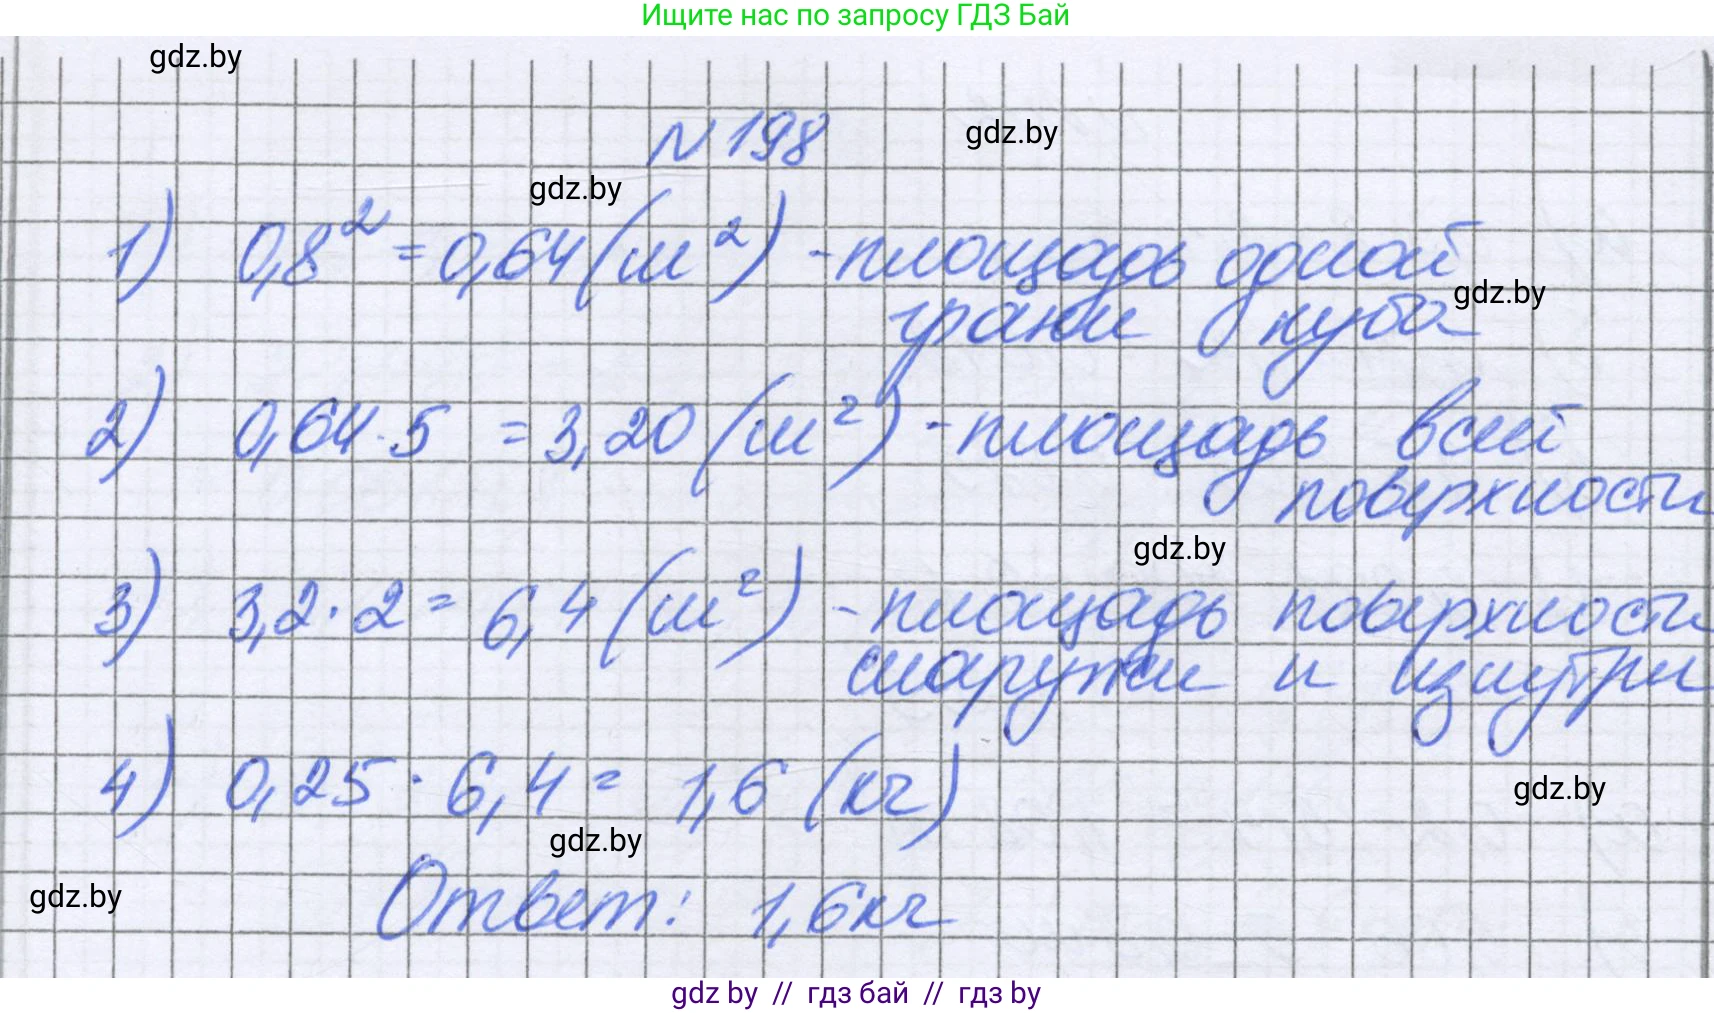 Ищите нас по запросу ГДЗ Бай
gdz.by
N 198
gdz.by
gdz.by
1) 0,8² = 0,64 (м²) - площадь одной
gdz.by
грани куба
2) 0,64 · 5 = 3,20 (м²) - площадь всей
поверхности
gdz.by
3) 3,2 · 2 = 6,4 (м²) - площадь поверхности
снаружи и изнутри
4) 0,25 · 6,4 = 1,6 (кг)
gdz.by
gdz.by
gdz.by
Ответ: 1,6 кг
gdz by // гдз бай // гдз by